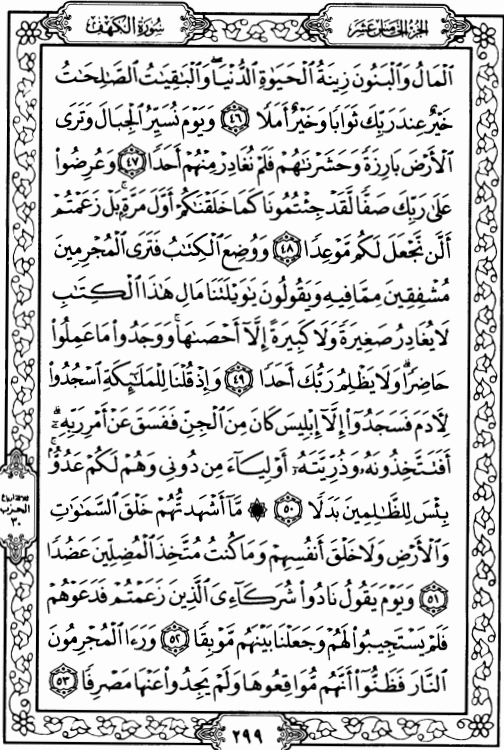 سُورَةُ الكَهْفِ
الجُزْءُ الخَامِسَ عَشَرَ
ٱلْمَالُ وَٱلْبَنُونَ زِينَةُ ٱلْحَيَوٰةِ ٱلدُّنْيَا ۖ وَٱلْبَٰقِيَٰتُ ٱلصَّٰلِحَٰتُ
خَيْرٌ عِندَ رَبِّكَ ثَوَابًا وَخَيْرٌ أَمَلًا ٤٦ وَيَوْمَ نُسَيِّرُ ٱلْجِبَالَ وَتَرَى
ٱلْأَرْضَ بَارِزَةً وَحَشَرْنَٰهُمْ فَلَمْ نُغَادِرْ مِنْهُمْ أَحَدًا ٤٧ وَعُرِضُوا۟
عَلَىٰ رَبِّكَ صَفًّا لَّقَدْ جِئْتُمُونَا كَمَا خَلَقْنَٰكُمْ أَوَّلَ مَرَّةٍۭ ۚ بَلْ زَعَمْتُمْ
أَلَّن نَّجْعَلَ لَكُم مَّوْعِدًا ٤٨ وَوُضِعَ ٱلْكِتَٰبُ فَتَرَى ٱلْمُجْرِمِينَ
مُشْفِقِينَ مِمَّا فِيهِ وَيَقُولُونَ يَٰوَيْلَتَنَا مَالِ هَٰذَا ٱلْكِتَٰبِ
لَا يُغَادِرُ صَغِيرَةً وَلَا كَبِيرَةً إِلَّآ أَحْصَىٰهَا ۚ وَوَجَدُوا۟ مَا عَمِلُوا۟
حَاضِرًا ۗ وَلَا يَظْلِمُ رَبُّكَ أَحَدًا ٤٩ وَإِذْ قُلْنَا لِلْمَلَٰٓئِكَةِ ٱسْجُدُوا۟
لِءَادَمَ فَسَجَدُوٓا۟ إِلَّآ إِبْلِيسَ كَانَ مِنَ ٱلْجِنِّ فَفَسَقَ عَنْ أَمْرِ رَبِّهِۦٓ ۗ
أَفَتَتَّخِذُونَهُۥ وَذُرِّيَّتَهُۥٓ أَوْلِيَآءَ مِن دُونِى وَهُمْ لَكُمْ عَدُوٌّۢ ۚ
بِئْسَ لِلظَّٰلِمِينَ بَدَلًا ٥٠ ۞ مَّآ أَشْهَدتُّهُمْ خَلْقَ ٱلسَّمَٰوَٰتِ
وَٱلْأَرْضِ وَلَا خَلْقَ أَنفُسِهِمْ وَمَا كُنتُ مُتَّخِذَ ٱلْمُضِلِّينَ عَضُدًا
٥١ وَيَوْمَ يَقُولُ نَادُوا۟ شُرَكَآءِىَ ٱلَّذِينَ زَعَمْتُمْ فَدَعَوْهُمْ
فَلَمْ يَسْتَجِيبُوا۟ لَهُمْ وَجَعَلْنَا بَيْنَهُم مَّوْبِقًا ٥٢ وَرَءَا ٱلْمُجْرِمُونَ
ٱلنَّارَ فَظَنُّوٓا۟ أَنَّهُم مُّوَاقِعُوهَا وَلَمْ يَجِدُوا۟ عَنْهَا مَصْرِفًا ٥٣
الحزب
٣٠
٢٩٩